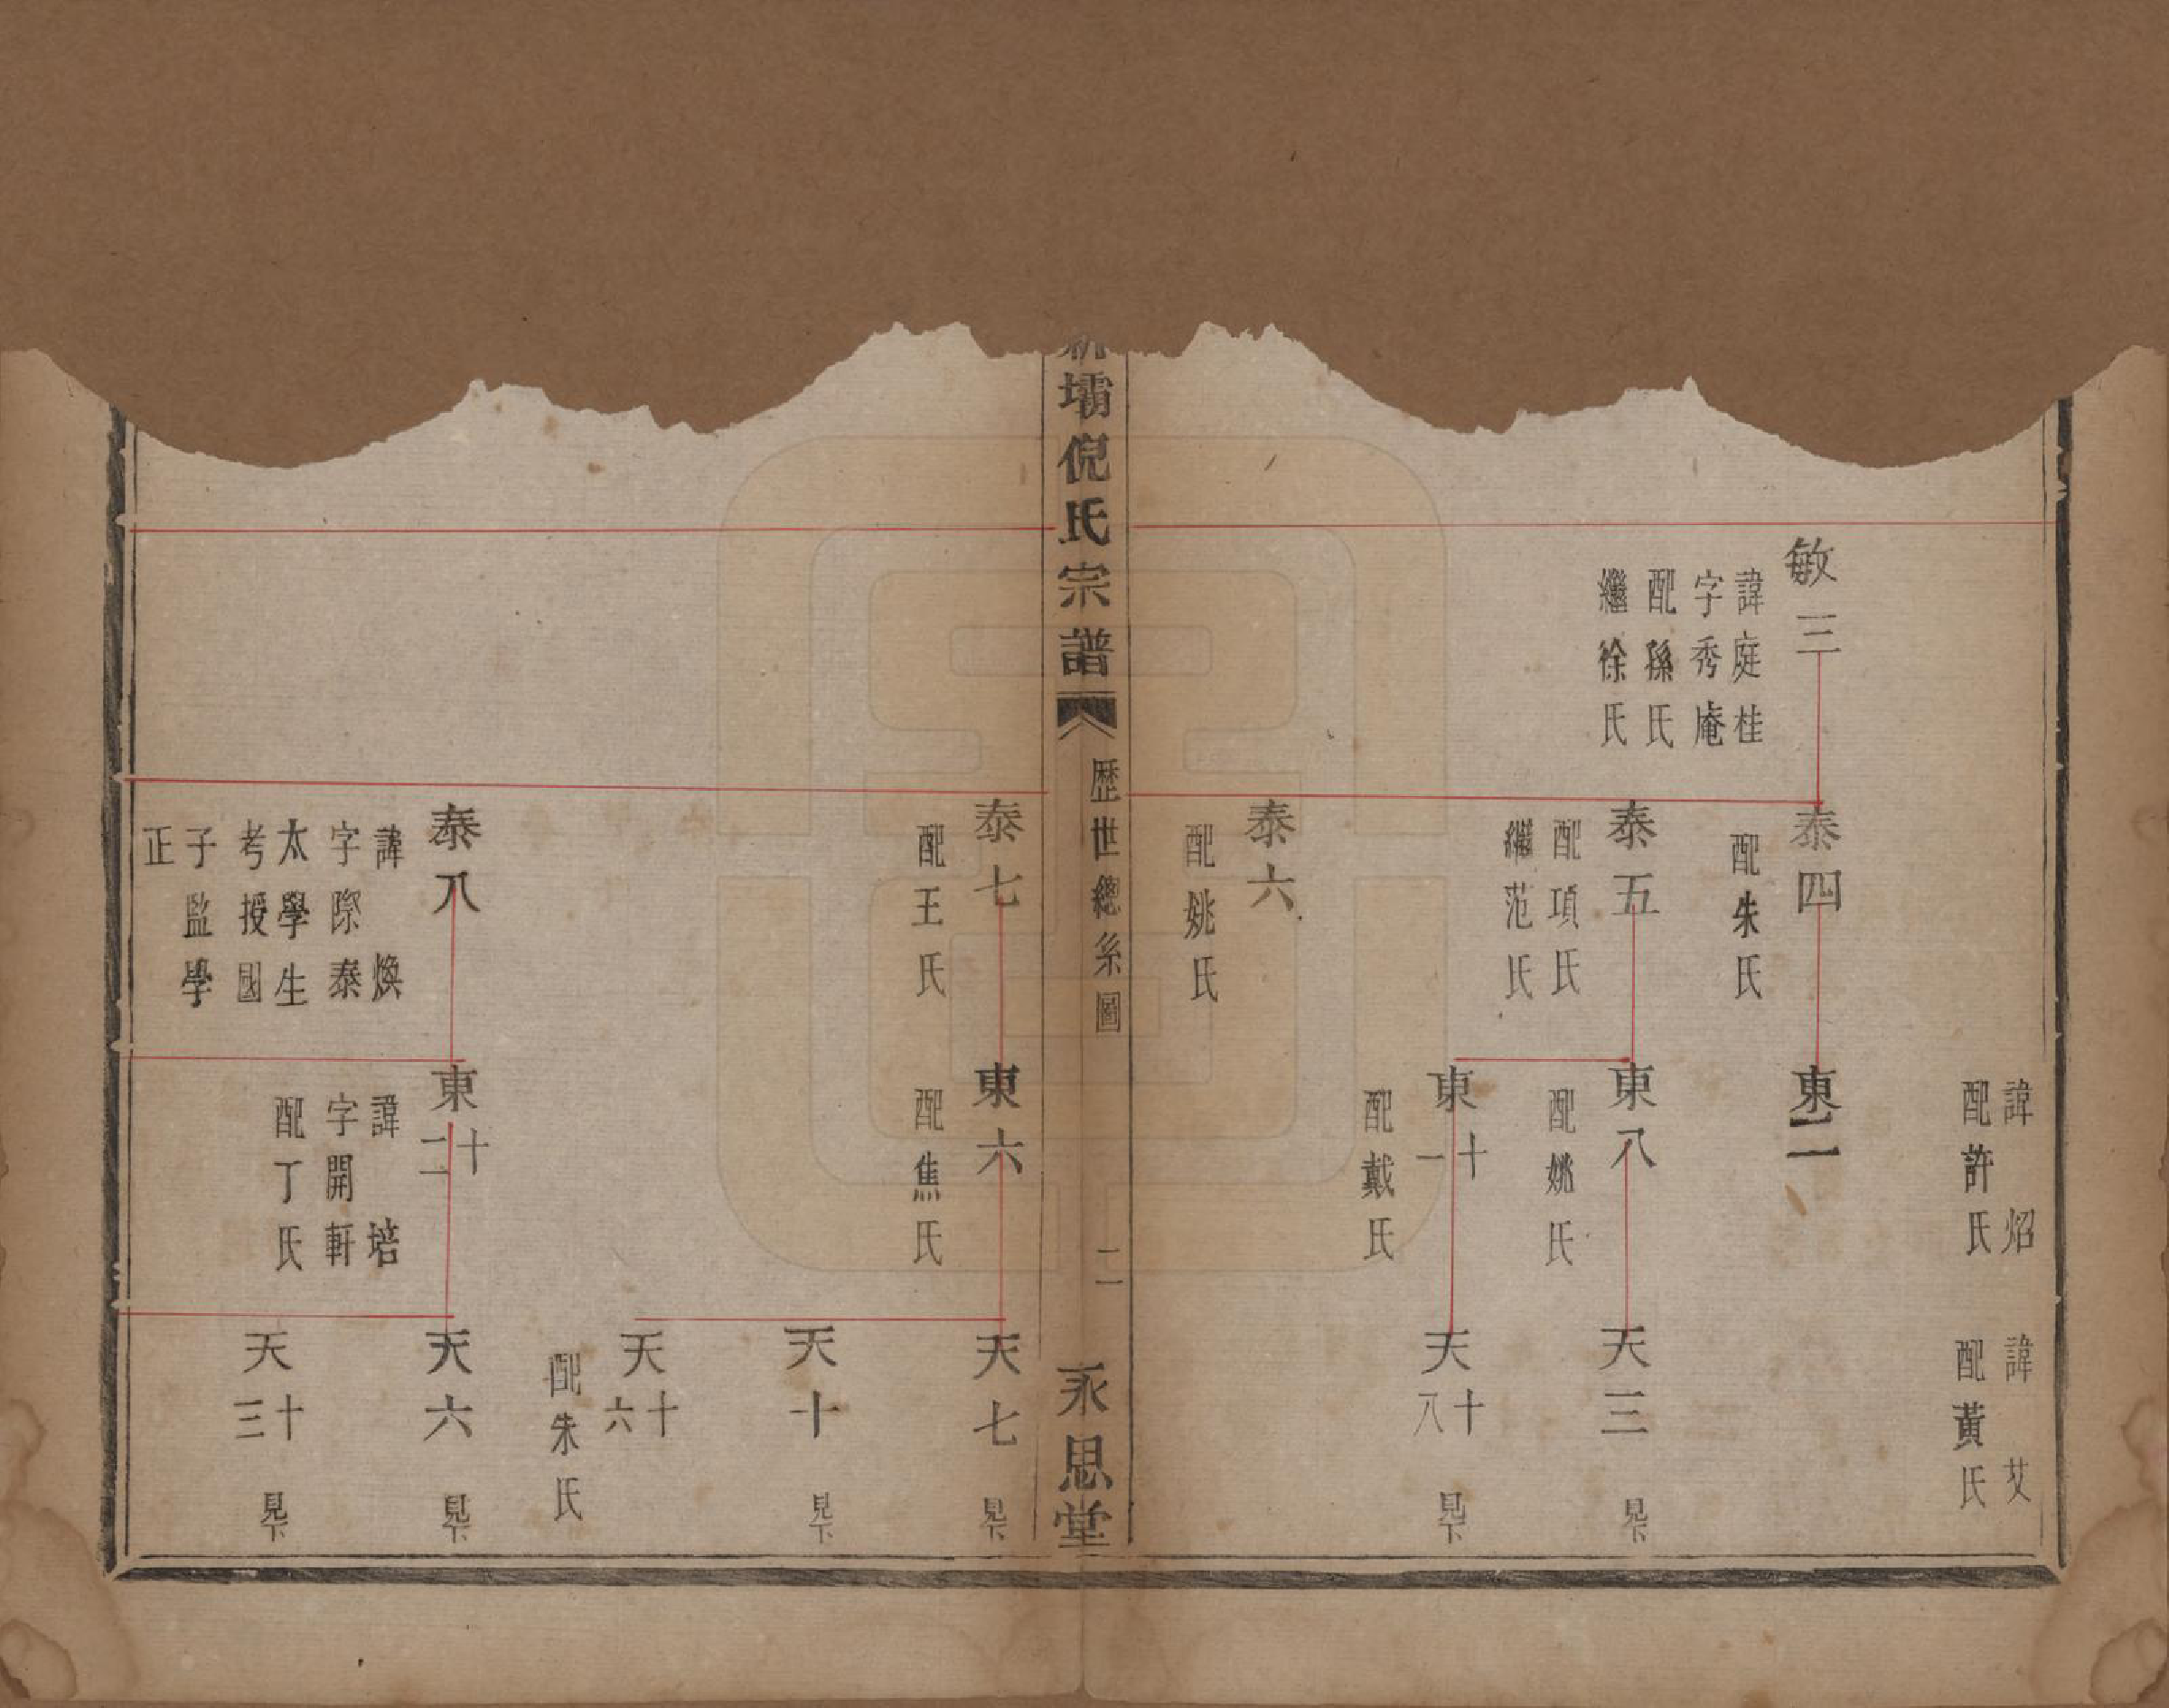 諱炤
配許氏
諱艾
配黃氏
敏三
諱庭桂
字秀庵
配孫氏
繼徐氏
泰四
配朱氏
東二
泰五
配項氏
繼范氏
東八
配姚氏
天三
見下
東十一
配戴氏
天十八
見下
泰六
配姚氏
新壩倪氏宗譜
歷世總系圖
二
永思堂
泰七
配王氏
東六
配焦氏
天七
見下
天十
見下
天十六
配朱氏
泰八
諱煥
字際泰
太學生
考授國
子監學
正
東十二
諱培
字開軒
配丁氏
天六
見下
天十三
見下